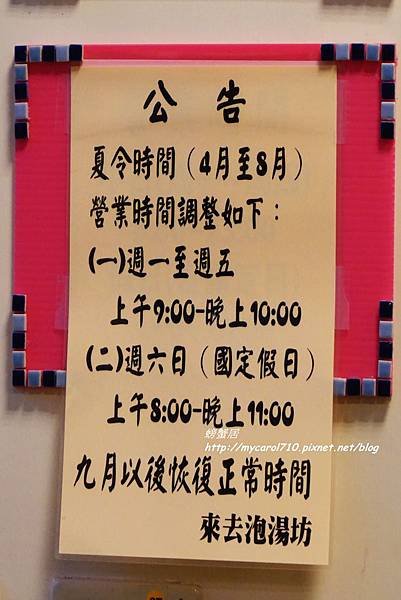 公告
夏令時間（4月至8月）
營業時間調整如下：
(一)週一至週五
上午9:00-晚上10:00
(二)週六日（國定假日）
上午8:00-晚上11:00
螃蟹居
http://mycarol710.pixnet.net/blog
九月以後恢復正常時間
來去泡湯坊